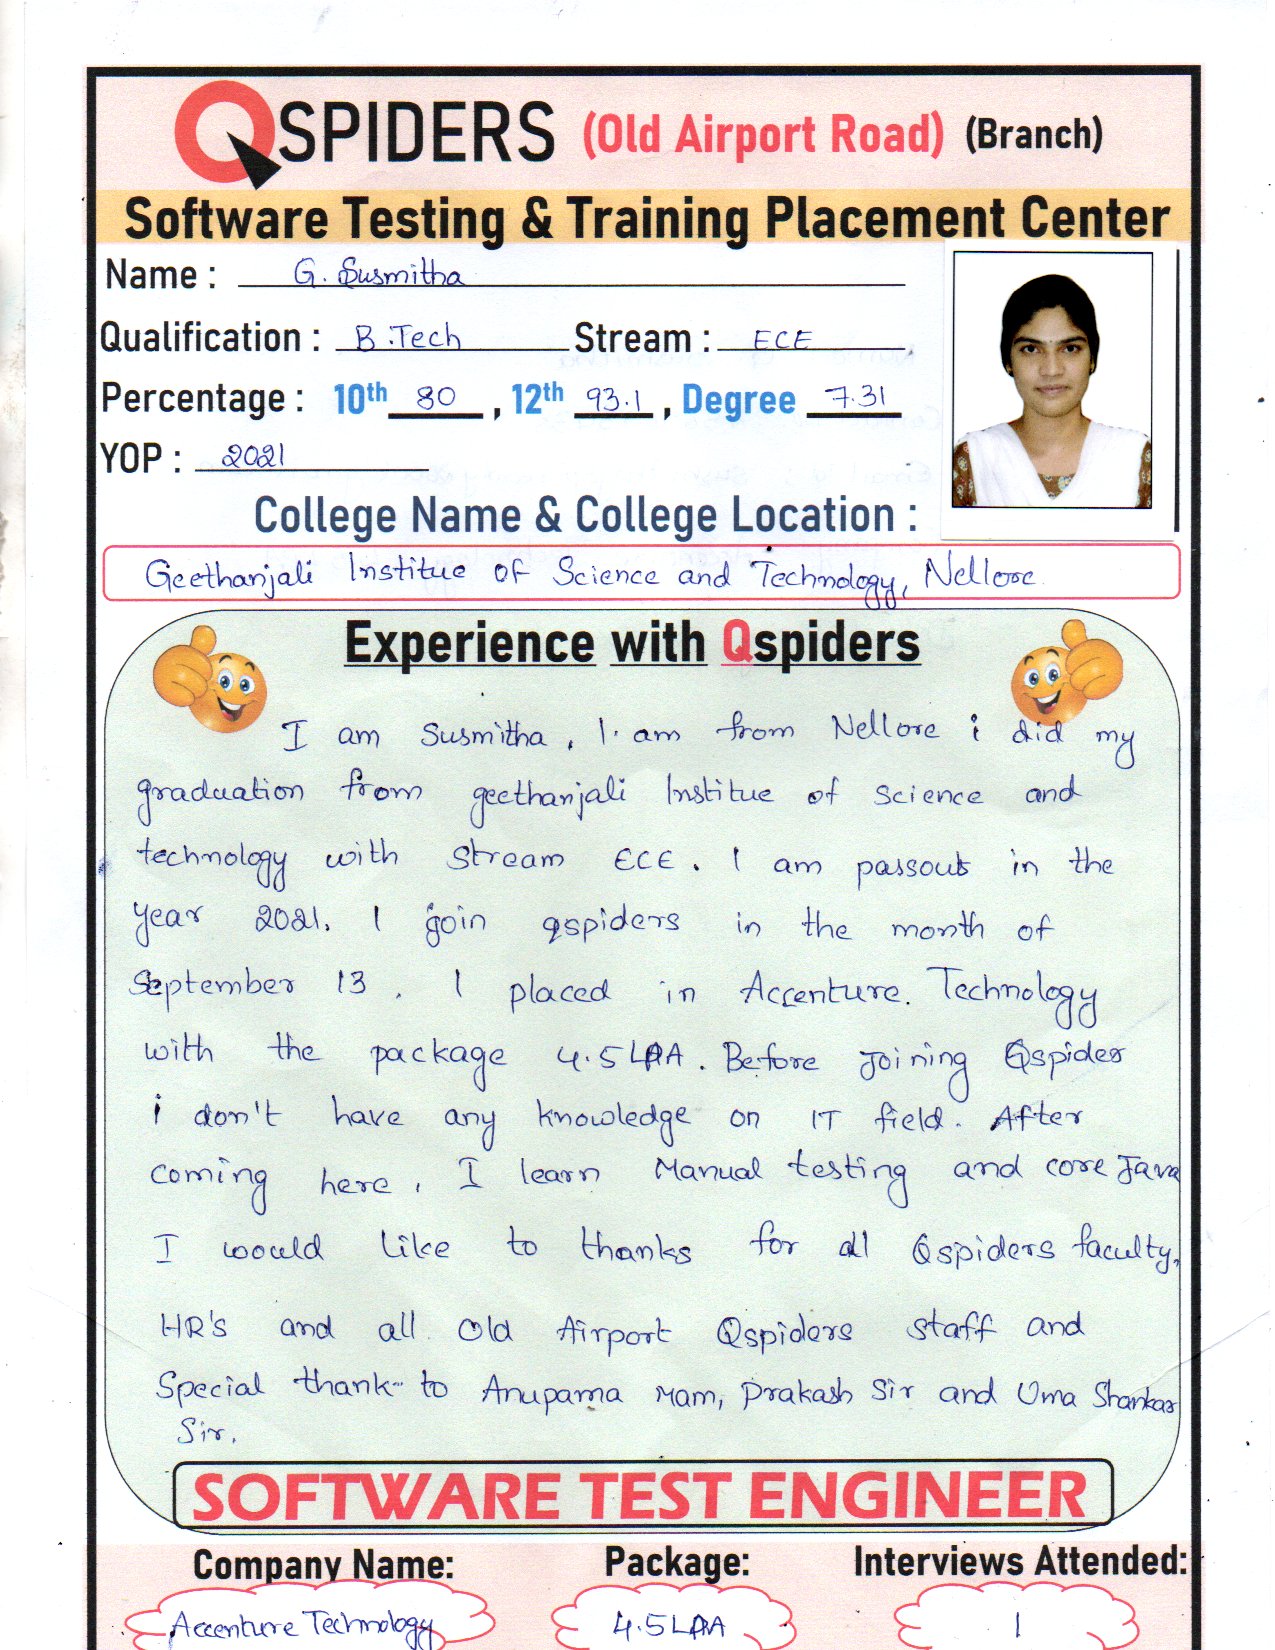 QSPIDERS (Old Airport Road) (Branch)
Software Testing & Training Placement Center
Name : G. Susmitha
Qualification : B.Tech Stream : ECE
Percentage : 10th 80 , 12th 93.1 , Degree 7.31
YOP : 2021
College Name & College Location :
Geethanjali Institue of Science and Technology, Nellore
Experience with Qspiders
I am Susmitha, I am from Nellore i did my
graduation from geethanjali Institue of science and
technology with stream ECE. I am passout in the
year 2021. I join qspiders in the month of
September 13. I placed in Accenture. Technology
with the package 4.5 LPA. Before joining Qspider
i don't have any knowledge on IT field. After
coming here, I learn Manual testing and core Java
I would like to thanks for all Qspiders faculty,
HR's and all Old Airport Qspiders staff and
Special thank to Anupama Mam, Prakash Sir and Uma Shankar
Sir.
SOFTWARE TEST ENGINEER
Company Name: Package: Interviews Attended:
Accenture Technology 4.5 LPA 1